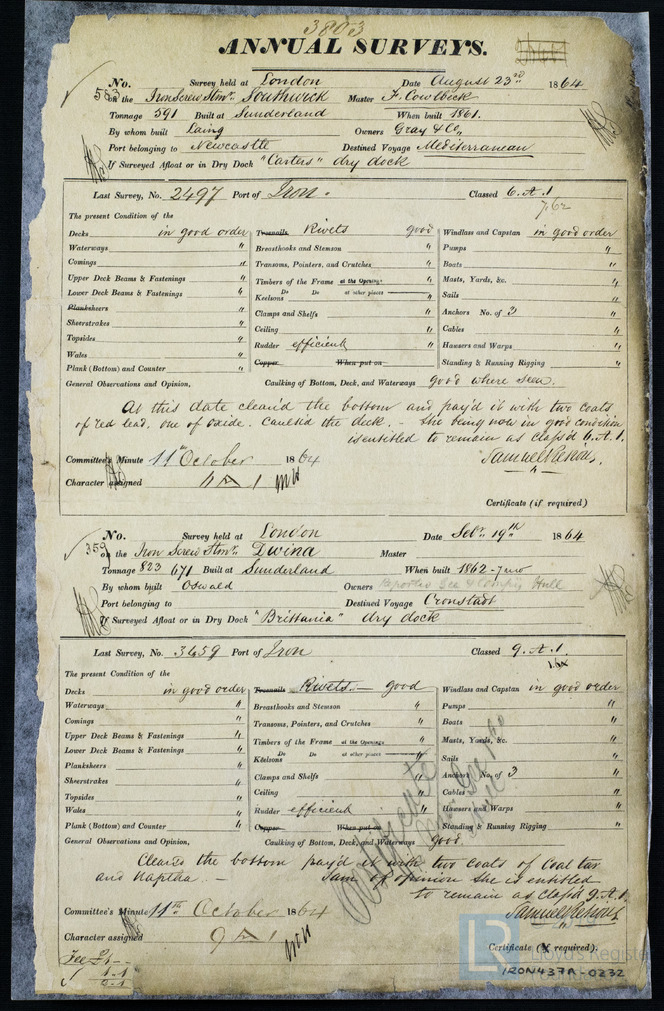 3803
ANNUAL SURVEYS.
No. 583 Survey held at London Date August 23rd 1864
on the Iron Screw Stmr. Southwick Master F. Cowlbeck
Tonnage 591 Built at Sunderland When built 1861.
By whom built Laing Owners Gray & Co,
Port belonging to Newcastle Destined Voyage Mediterranean
If Surveyed Afloat or in Dry Dock "Carters" dry dock
Last Survey, No. 2497 Port of Iron. Classed 6.A.1
7,62
The present Condition of the
Decks in good order Treenails Rivets good Windlass and Capstan in good order
Waterways " Breasthooks and Stemson " Pumps "
Comings " Transoms, Pointers, and Crutches " Boats "
Upper Deck Beams & Fastenings " Timbers of the Frame at the Openings " Masts, Yards, &c. "
Lower Deck Beams & Fastenings " Keelsons Do Do at other places " Sails "
Planksheers " Clamps and Shelfs " Anchors No. of 3 "
Sheerstrakes " Ceiling " Cables "
Topsides " Rudder efficient " Hawsers and Warps "
Wales " Copper When put on Standing & Running Rigging "
Plank (Bottom) and Counter "
General Observations and Opinion, Caulking of Bottom, Deck, and Waterways good where seen.
At this date clean'd the bottom and pay'd it with two coats
of red lead, one of oxide. Caulk'd the deck. - She being now in good condition
is entitled to remain as class'd 6.A.1.
Committee's Minute 11th October 1864
Character assigned A 1
Certificate (if required)
No. 359 Survey held at London Date Sebr. 19th 1864
on the Iron Screw Stmr. Dwina Master
Tonnage 823 671 Built at Sunderland When built 1862 - 7mo
By whom built Oswald Owners Hull
Port belonging to Destined Voyage Cronstadt
If Surveyed Afloat or in Dry Dock "Brittania" dry dock
Last Survey, No. 3459 Port of Iron Classed 9.A.1.
The present Condition of the
Decks in good order Treenails Rivets - good Windlass and Capstan in good order
Waterways " Breasthooks and Stemson " Pumps "
Comings " Transoms, Pointers, and Crutches " Boats "
Upper Deck Beams & Fastenings " Timbers of the Frame at the Openings " Masts, Yards, &c. "
Lower Deck Beams & Fastenings " Keelsons Do Do at other places " Sails "
Planksheers " Clamps and Shelfs " Anchors No. of 3 "
Sheerstrakes " Ceiling " Cables "
Topsides " Rudder efficient " Hawsers and Warps "
Wales " Copper When put on Standing & Running Rigging "
Plank (Bottom) and Counter "
General Observations and Opinion, Caulking of Bottom, Deck, and Waterways good
Clean'd the bottom pay'd it with two coats of coal tar
and Naptha. - I am of opinion she is entitled
to remain as class'd 9.A.1.
Committee's Minute 11th October 1864
Character assigned 9 A 1
Certificate (if required).
Fee
LR Lloyd's Register
IRON437A-0232